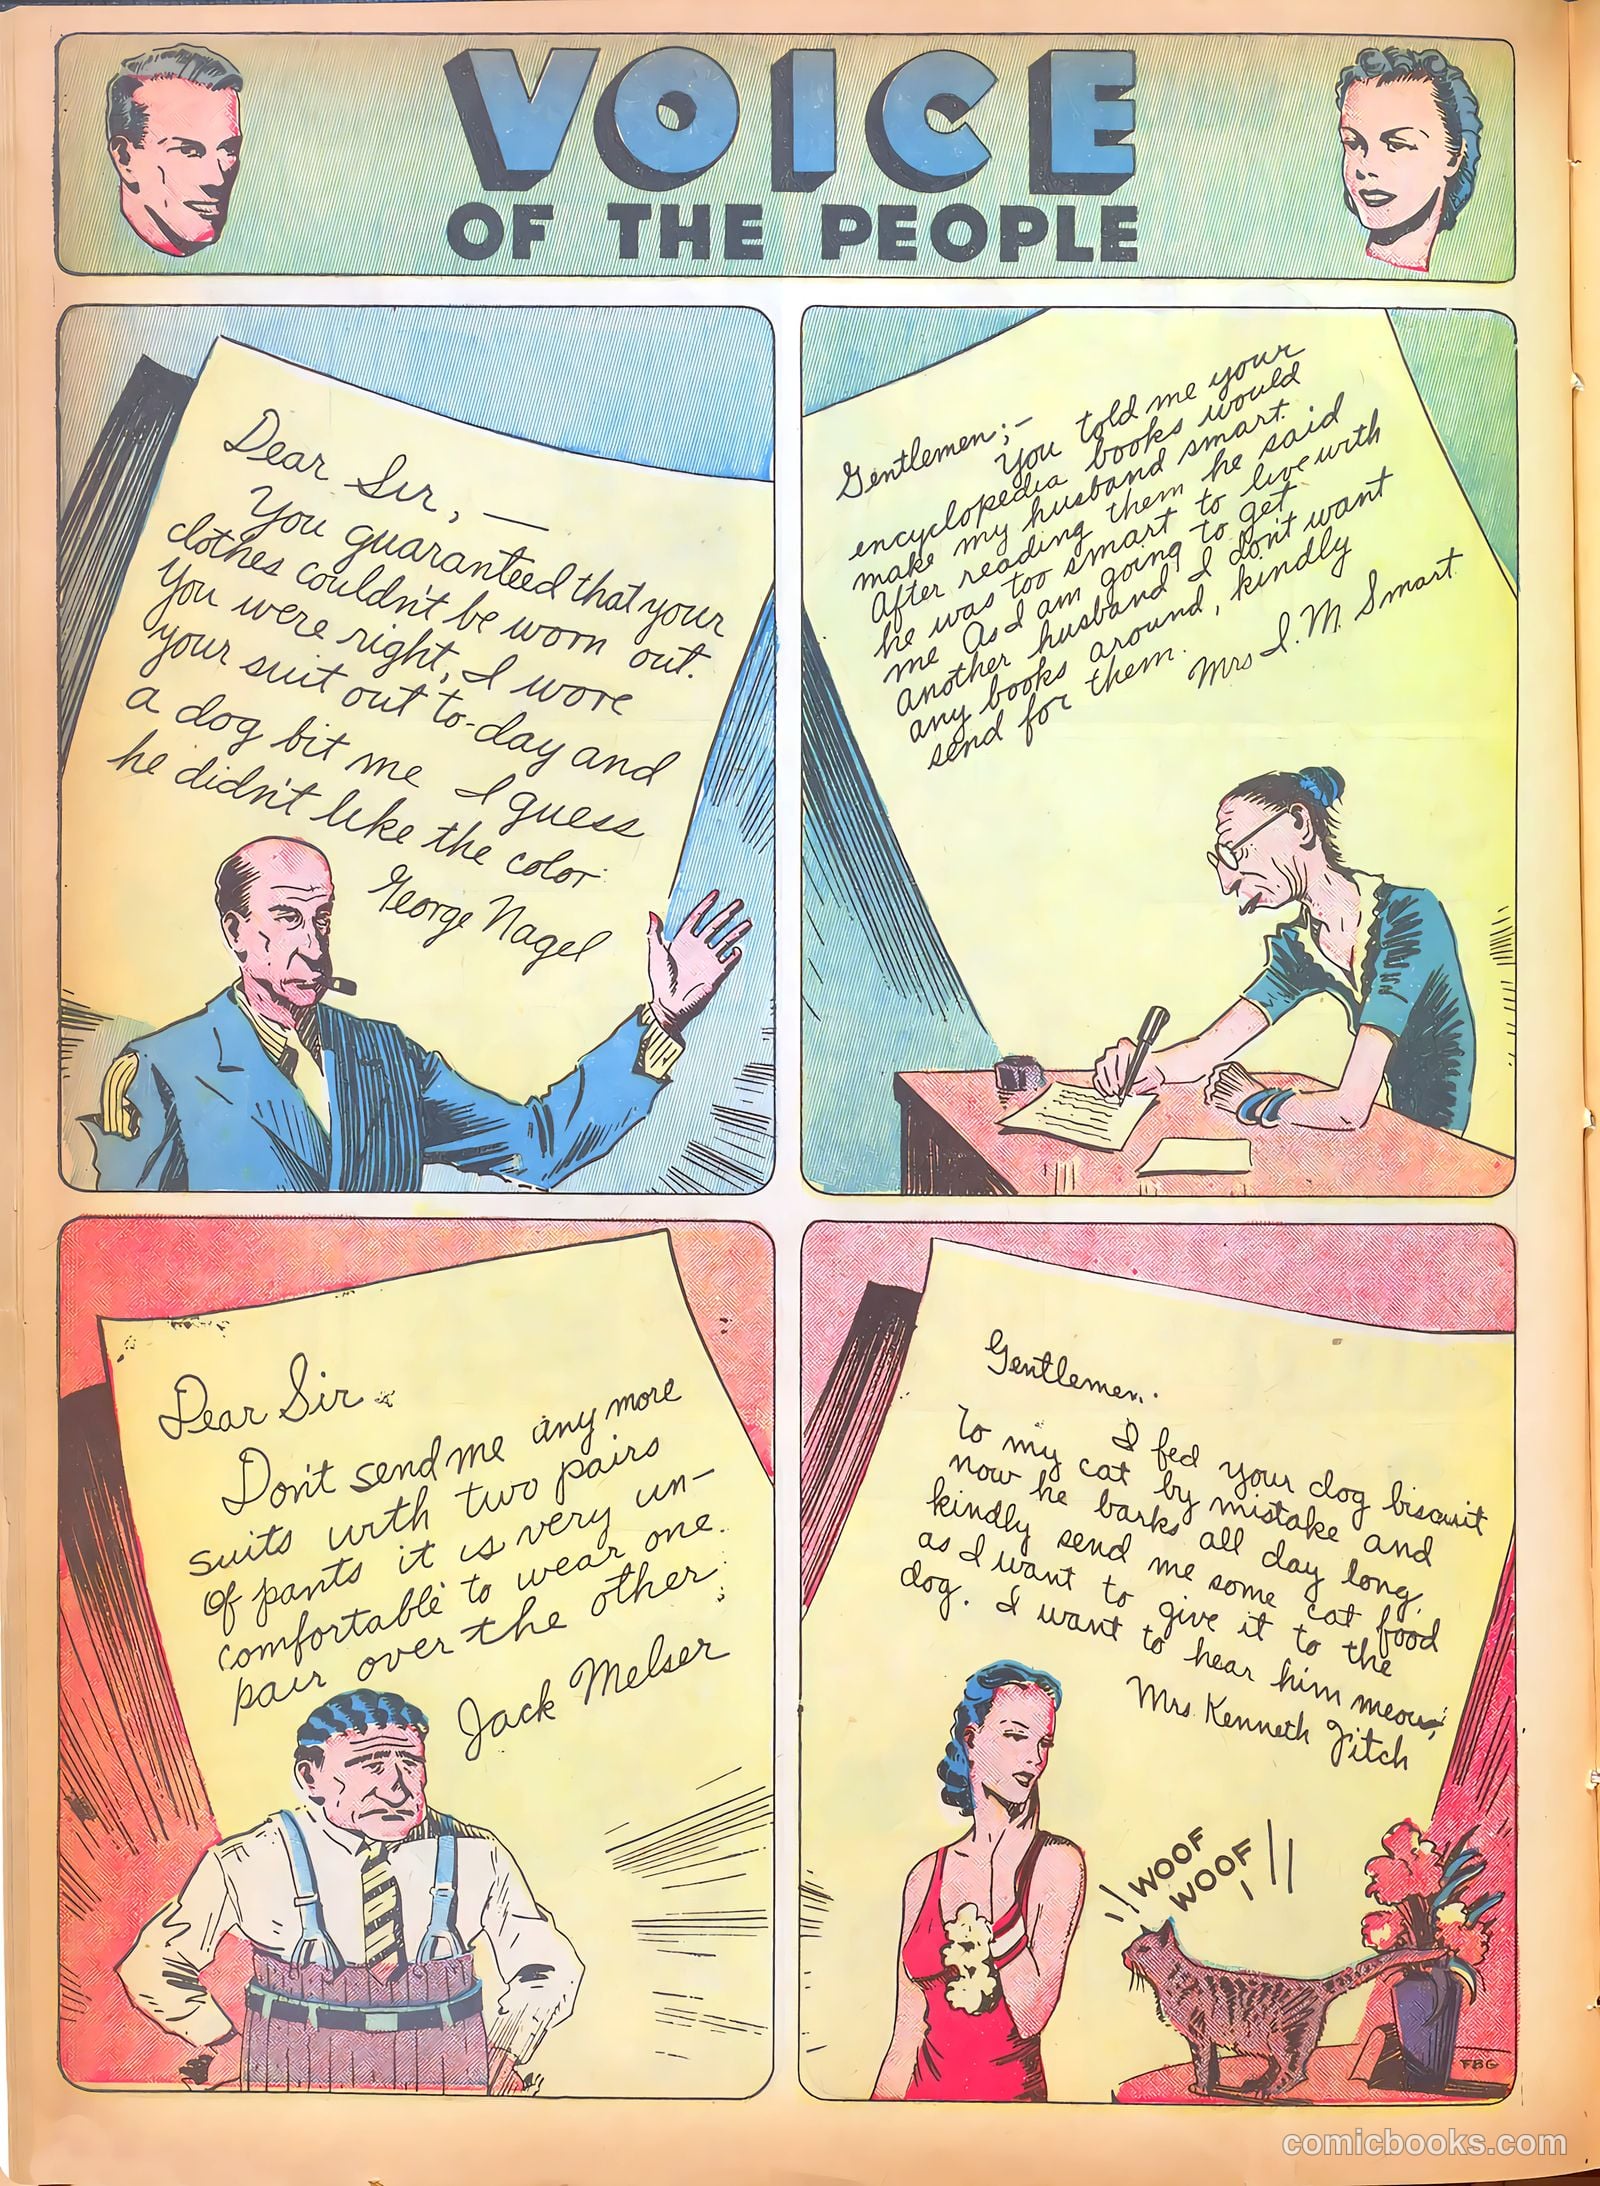 VOICE
OF THE PEOPLE
Dear Sir, —
You guaranteed that your
clothes couldn't be worn out.
You were right, I wore
your suit out to-day and
a dog bit me I guess
he didn't like the color
George Nagel
Gentlemen;-
You told me your
encyclopedia books would
make my husband smart.
After reading them he said
he was too smart to live with
me As I am going to get
another husband I don't want
any books around, kindly
send for them.
Mrs I. M. Smart
Dear Sir -
Don't send me any more
suits with two pairs
of pants it is very un-
comfortable to wear one
pair over the other
Jack Melser
Gentlemen.
I fed your dog biscuit
to my cat by mistake and
now he barks all day long,
kindly send me some cat food
as I want to give it to the
dog. I want to hear him meow,
Mrs. Kenneth Fitch
WOOF
WOOF
!
FBG
comicbooks.com